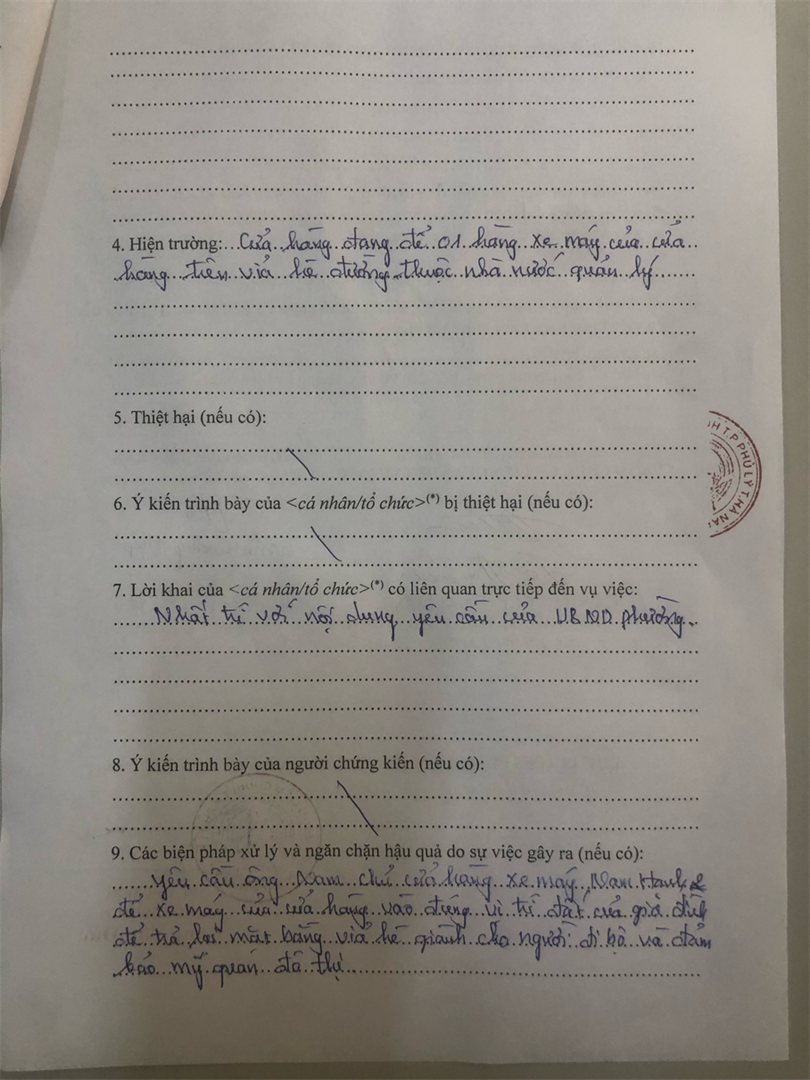 4. Hiện trường: Cửa hàng đang để 01 hàng xe máy của cửa
hàng trên vỉa hè đường thuộc nhà nước quản lý
5. Thiệt hại (nếu có):
6. Ý kiến trình bày của <cá nhân/tổ chức>(*) bị thiệt hại (nếu có):
7. Lời khai của <cá nhân/tổ chức>(*) có liên quan trực tiếp đến vụ việc:
Nhất trí với nội dung yêu cầu của UBND phường.
8. Ý kiến trình bày của người chứng kiến (nếu có):
9. Các biện pháp xử lý và ngăn chặn hậu quả do sự việc gây ra (nếu có):
Yêu cầu ông Nam chủ cửa hàng xe máy Nam Hạnh
để xe máy của cửa hàng vào đúng vị trí đất của gia đình
để trả lại mặt bằng vỉa hè giành cho người đi bộ và đảm
bảo mỹ quan đô thị
T.P PHỦ LÝ T.HÀ NA